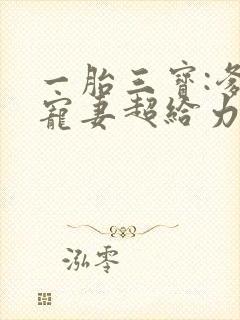 一胎三寶:爹
寵妻超給力
泓零